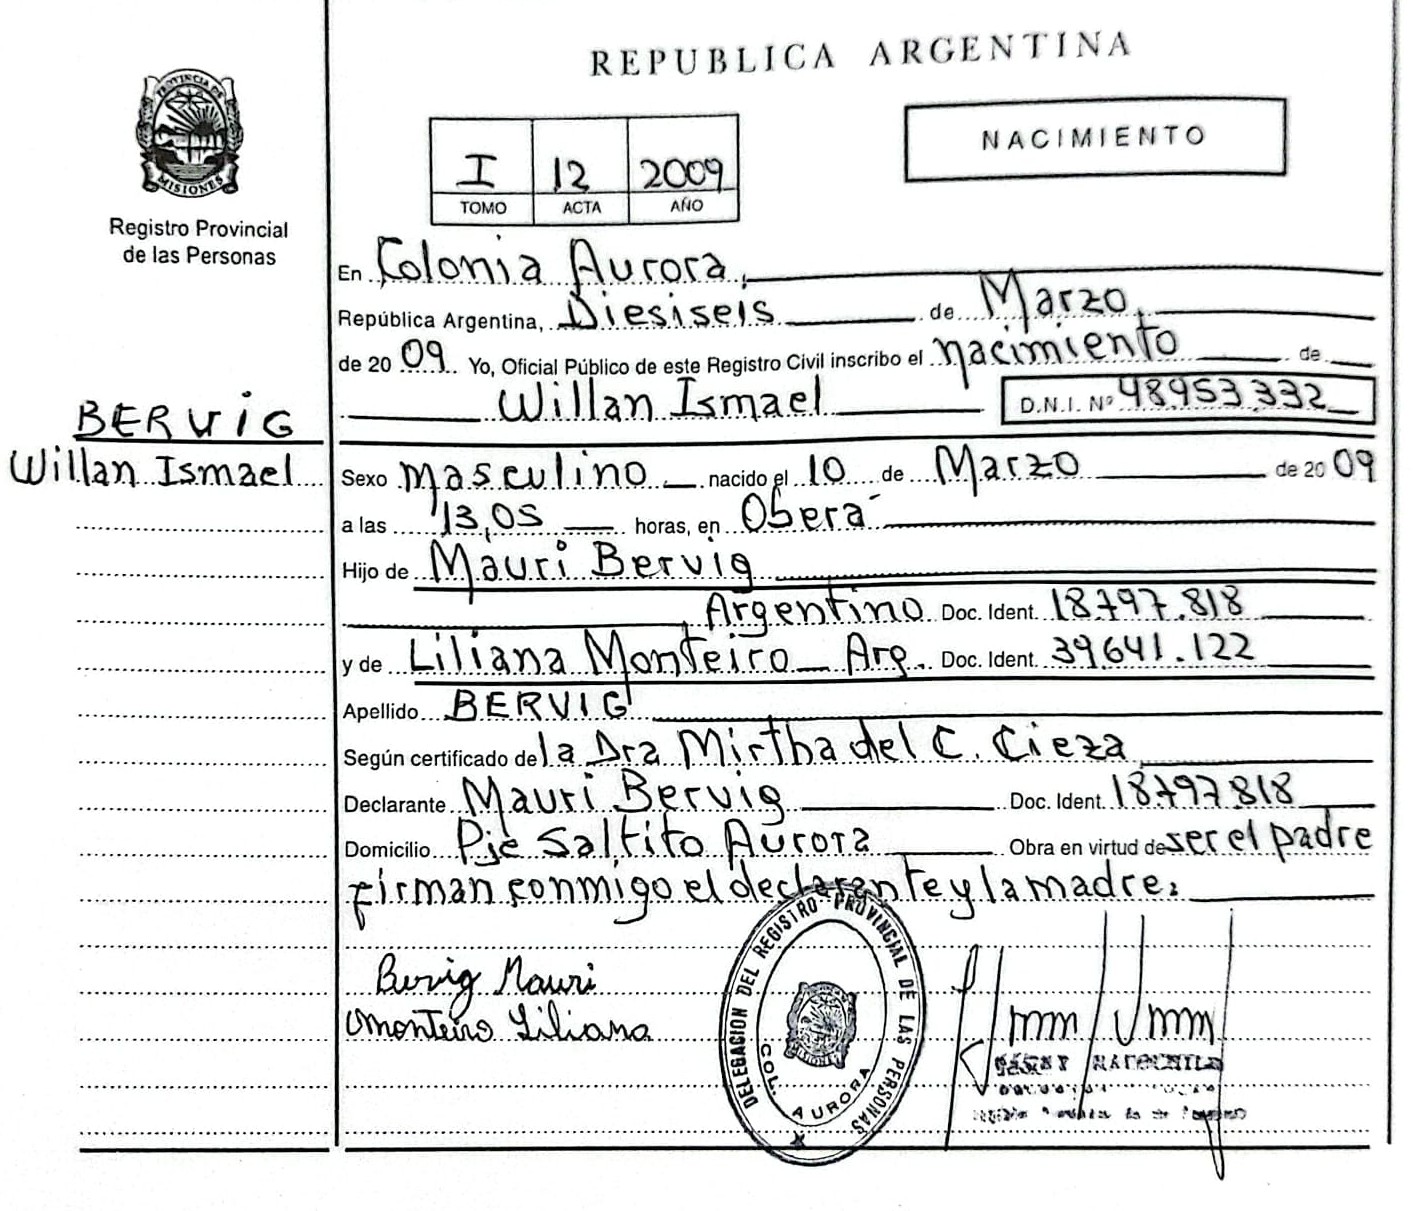 REPUBLICA ARGENTINA
PROVINCIA DE
MISIONES
Registro Provincial
de las Personas
I 12 2009
TOMO ACTA AÑO
NACIMIENTO
En Colonia Aurora,
República Argentina, Diesiseis de Marzo,
de 2009. Yo, Oficial Público de este Registro Civil inscribo el nacimiento de
Willan Ismael D.N.I. Nº 48953332
BERVIG
Willan Ismael
Sexo Masculino nacido el 10 de Marzo de 2009
a las 13,05 horas, en Oberá
Hijo de Mauri Bervig
Argentino Doc. Ident. 18.797.818
y de Liliana Monteiro Arg. Doc. Ident. 39641.122
Apellido BERVIG
Según certificado de la Dra Mirtha del C. Cieza
Declarante Mauri Bervig Doc. Ident. 18.797.818
Domicilio Pje Saltito Aurora Obra en virtud de ser el padre
firman conmigo el declarente y la madre.
Bervig Mauri
Monteiro Liliana
DELEGACION DEL REGISTRO PROVINCIAL DE LAS PERSONAS
COL. AURORA